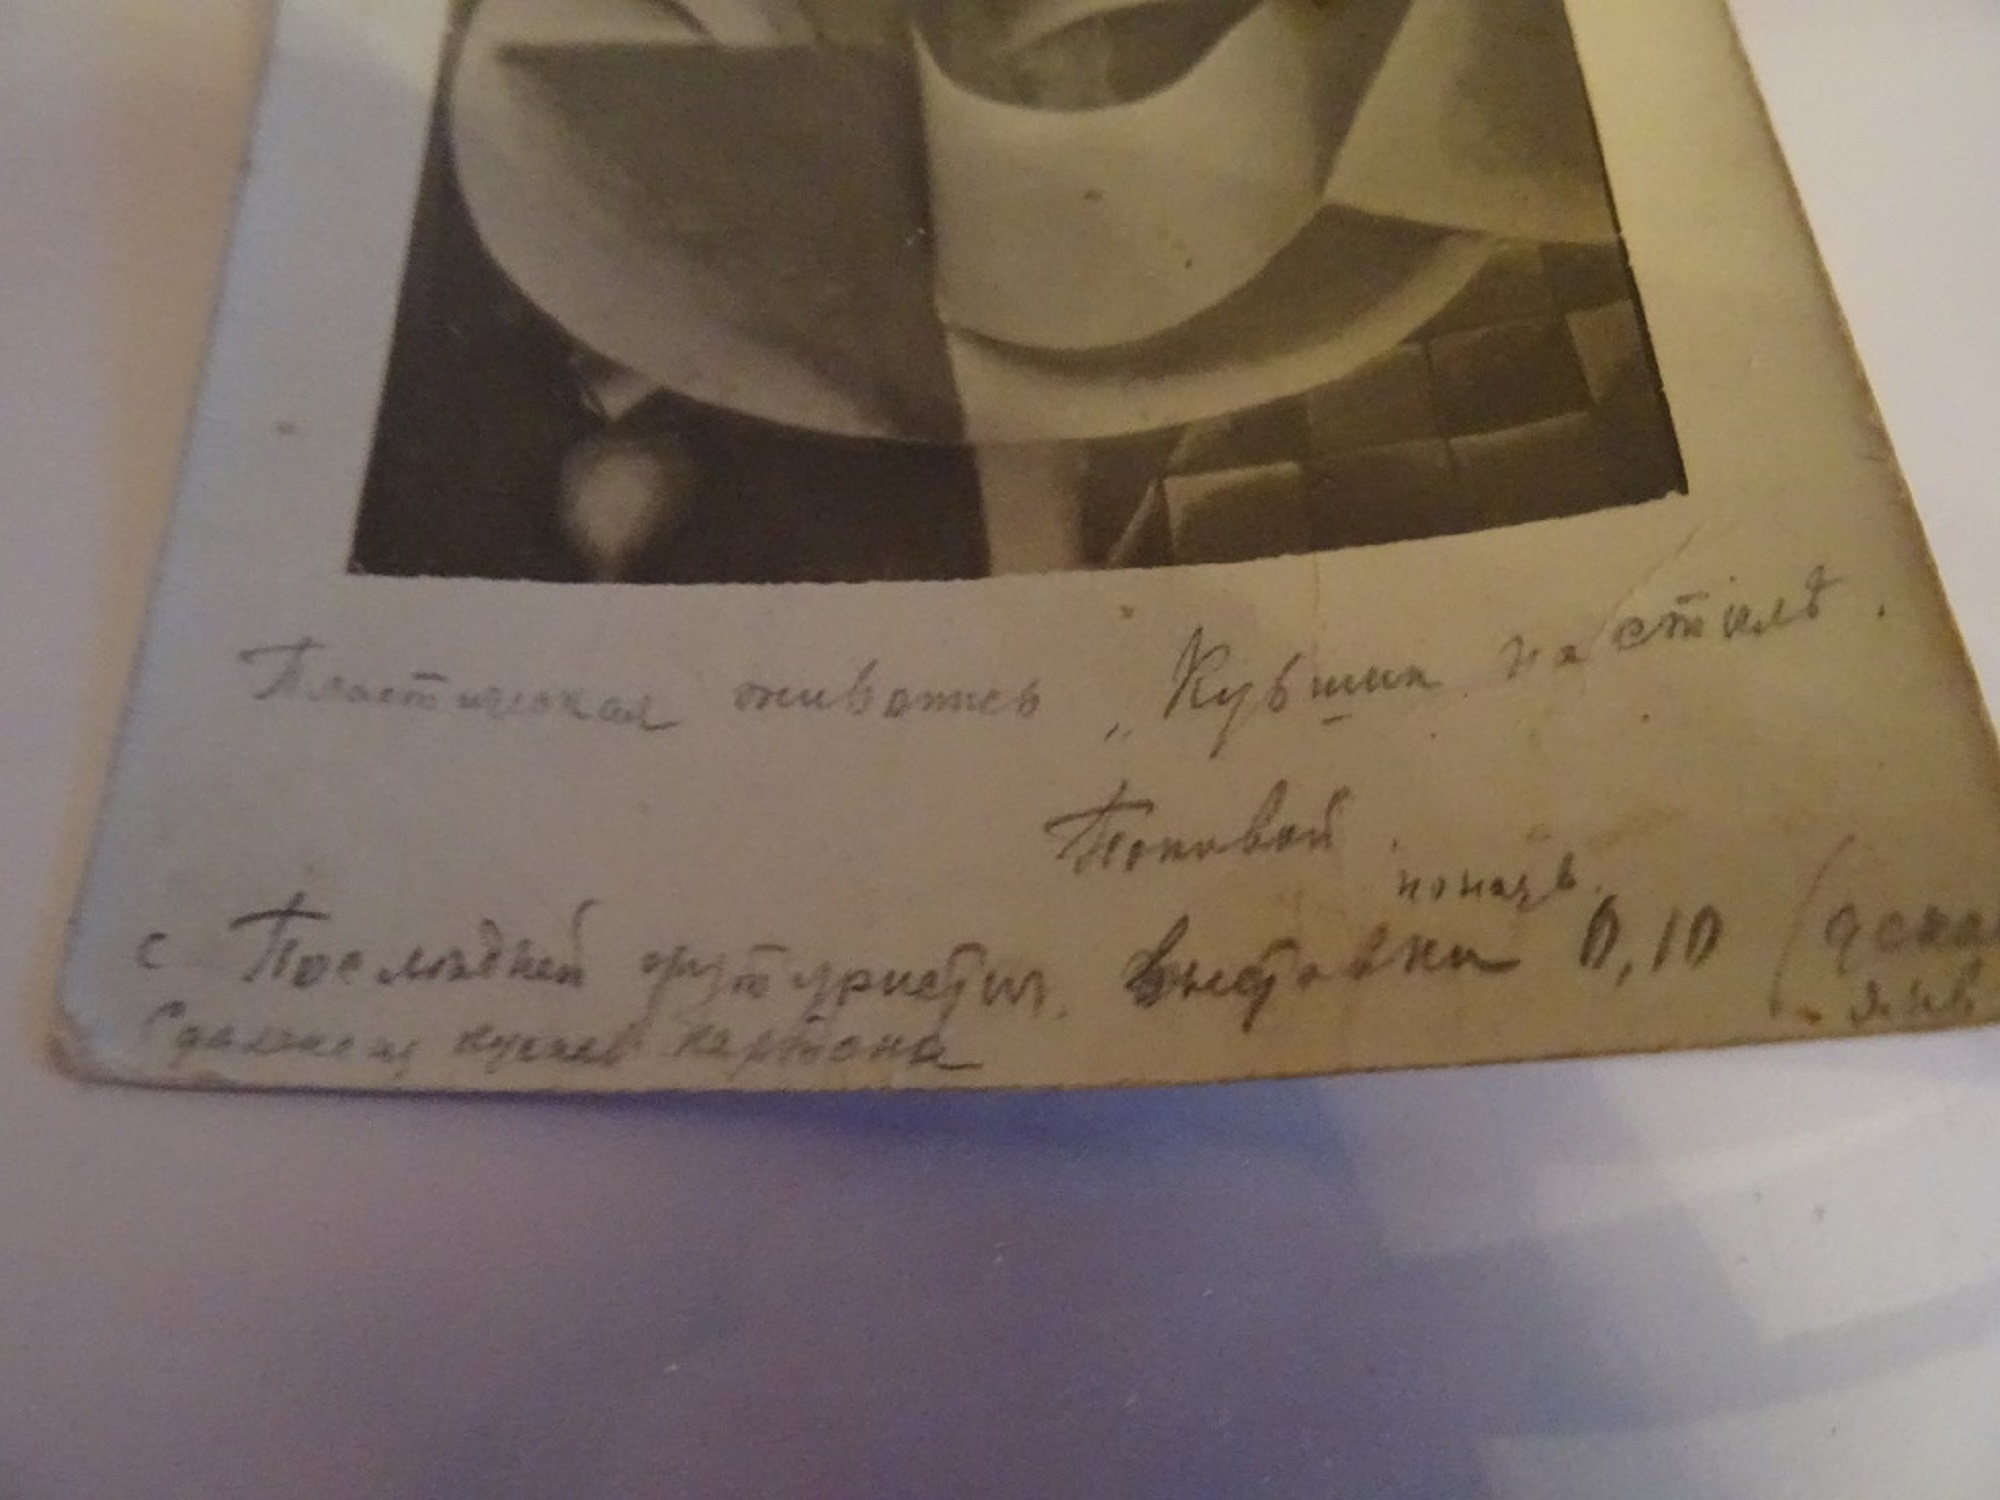 Пластическая живопись „Кувшин на столѣ.
Поповой.
показъ.
с Последней футуристич. выставки 0,10 (дека
янв
Сделано из кусков картона